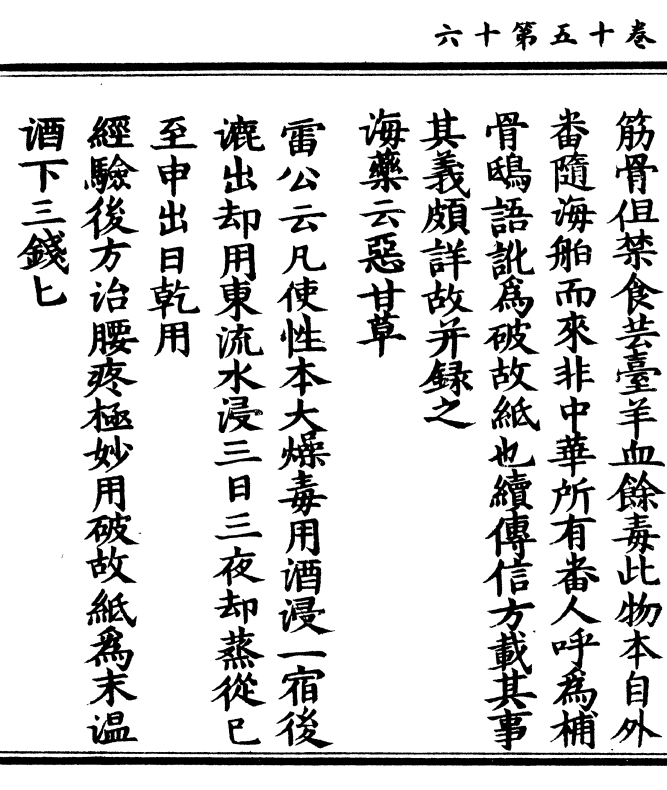 卷十五第十六
筋骨但禁食芸臺羊血餘毒此物本自外
番隨海舶而來非中華所有番人呼爲補
骨鴟語訛爲破故紙也續傳信方載其事
其義頗詳故并録之
海藥云惡甘草
雷公云凡使性本大燥毒用酒浸一宿後
漉出却用東流水浸三日三夜却蒸從巳
至申出日乾用
經驗後方治腰疼極妙用破故紙爲末温
酒下三錢匕